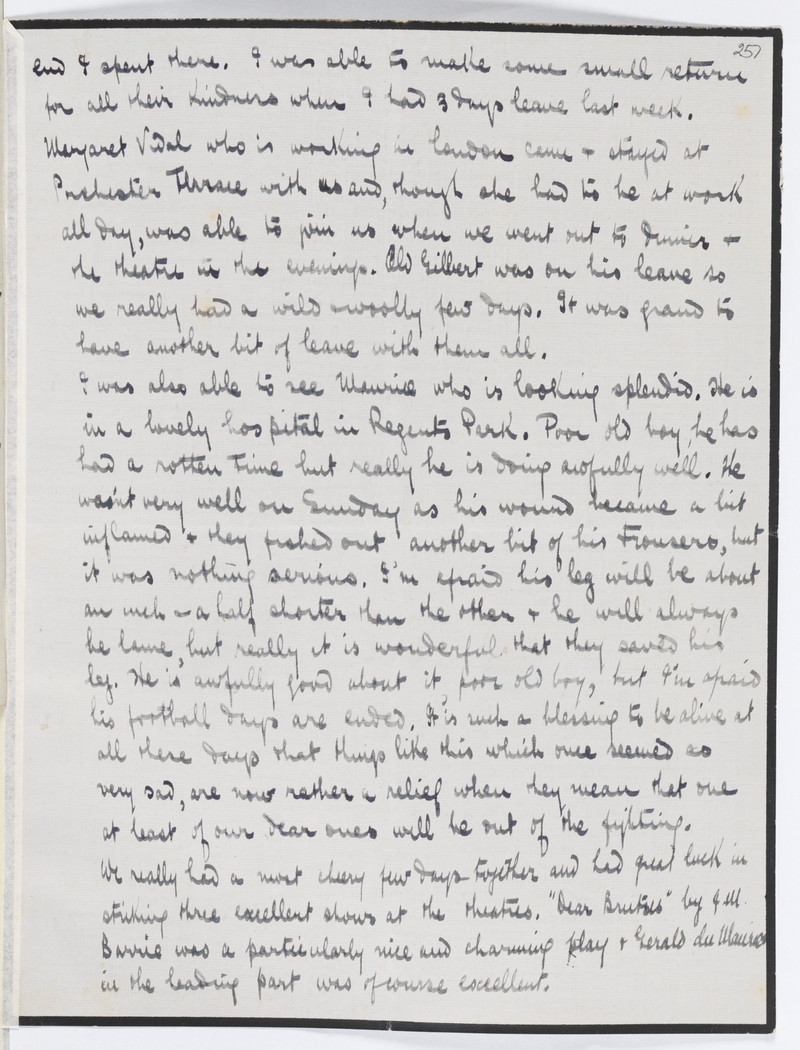 257
end I spent there. I was able to make some small return
for all their kindness when I had 3 days leave last week.
Margaret Vidal who is working in London came + stayed at
Porchester Terrace with us and, though she had to be at work
all day, was able to join us when we went out to dinner +
the theatre in the evenings. Old Gilbert was on his leave so
we really had a wild + woolly few days. It was grand to
have another bit of leave with them all.
I was also able to see Maurice who is looking splendid. He is
in a lovely hospital in Regents Park. Poor old boy, he has
had a rotten time but really he is doing awfully well. He
wasn't very well on Sunday as his wound became a bit
inflamed + they fished out another bit of his trousers, but
it was nothing serious. I'm afraid his leg will be about
an inch + a half shorter than the other + he will always
be lame, but really it is wonderful that they saved his
leg. He is awfully good about it, poor old boy, but I'm afraid
his football days are ended. It is such a blessing to be alive at
all these days that things like this which once seemed so
very sad, are now rather a relief when they mean that one
at least of our dear ones will be out of the fighting.
We really had a most cheery few days together and had great luck in
striking three excellent shows at the theatres. "Dear Brutus" by J.M.
Barrie was a particularly nice and charming play + Gerald du Maurier
in the leading part was of course excellent.